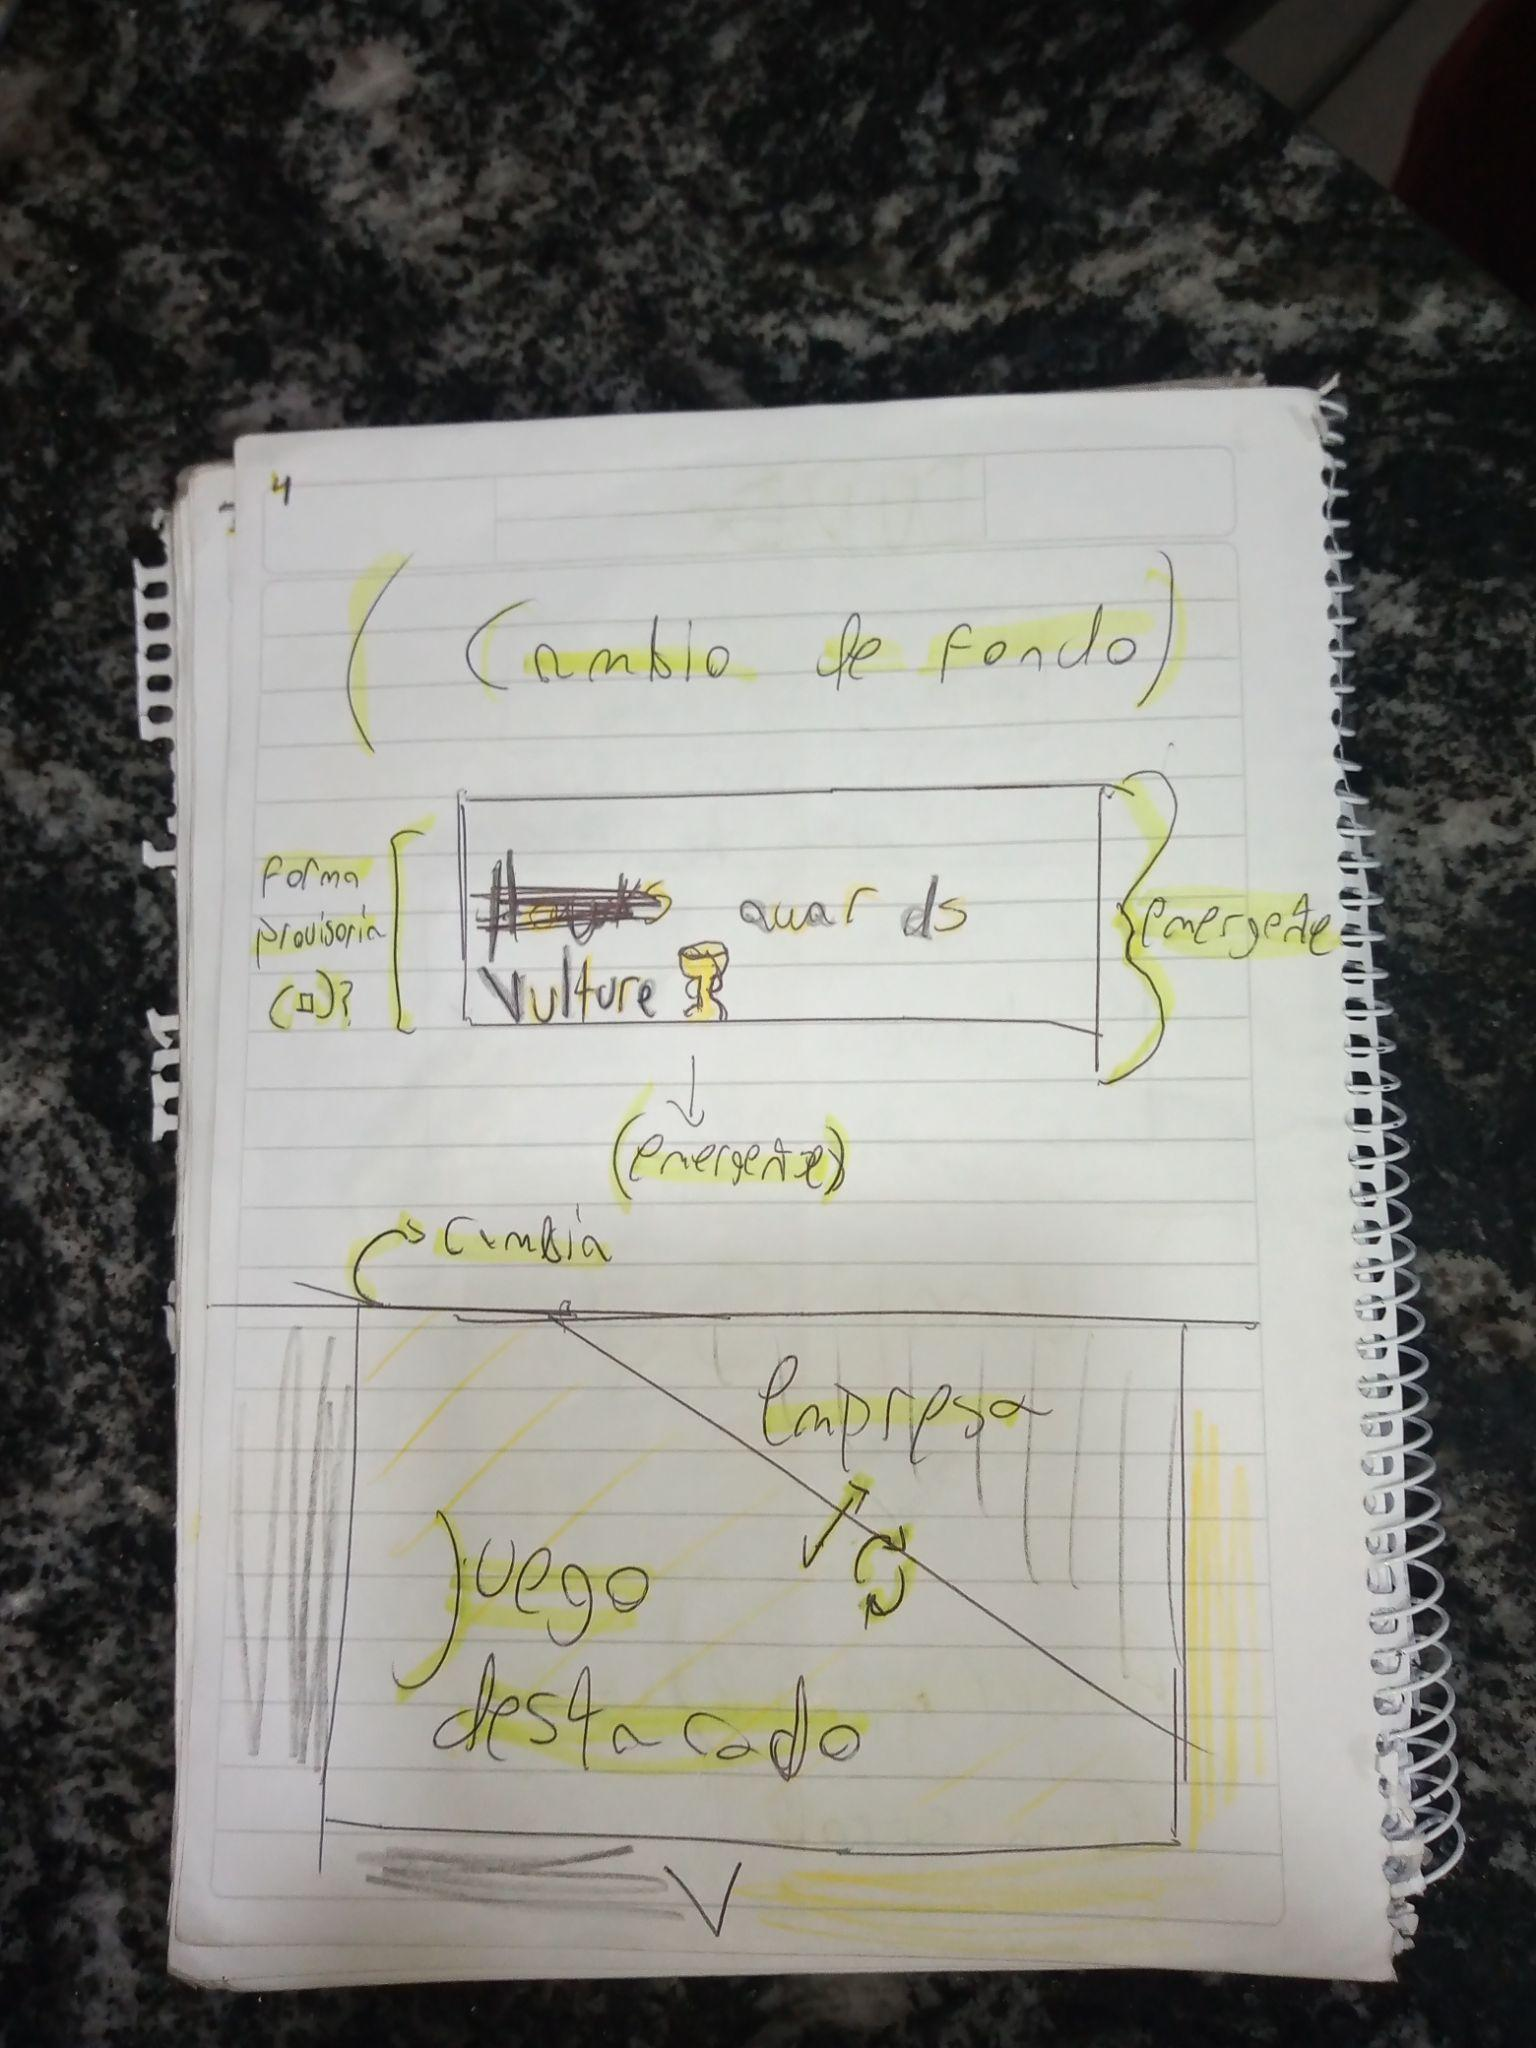 4
(Cambio de fondo)
forma
provisoria
(□)?
awards
Vulture
emergente
(emergente)
cambia
Empresa
Juego
destacado